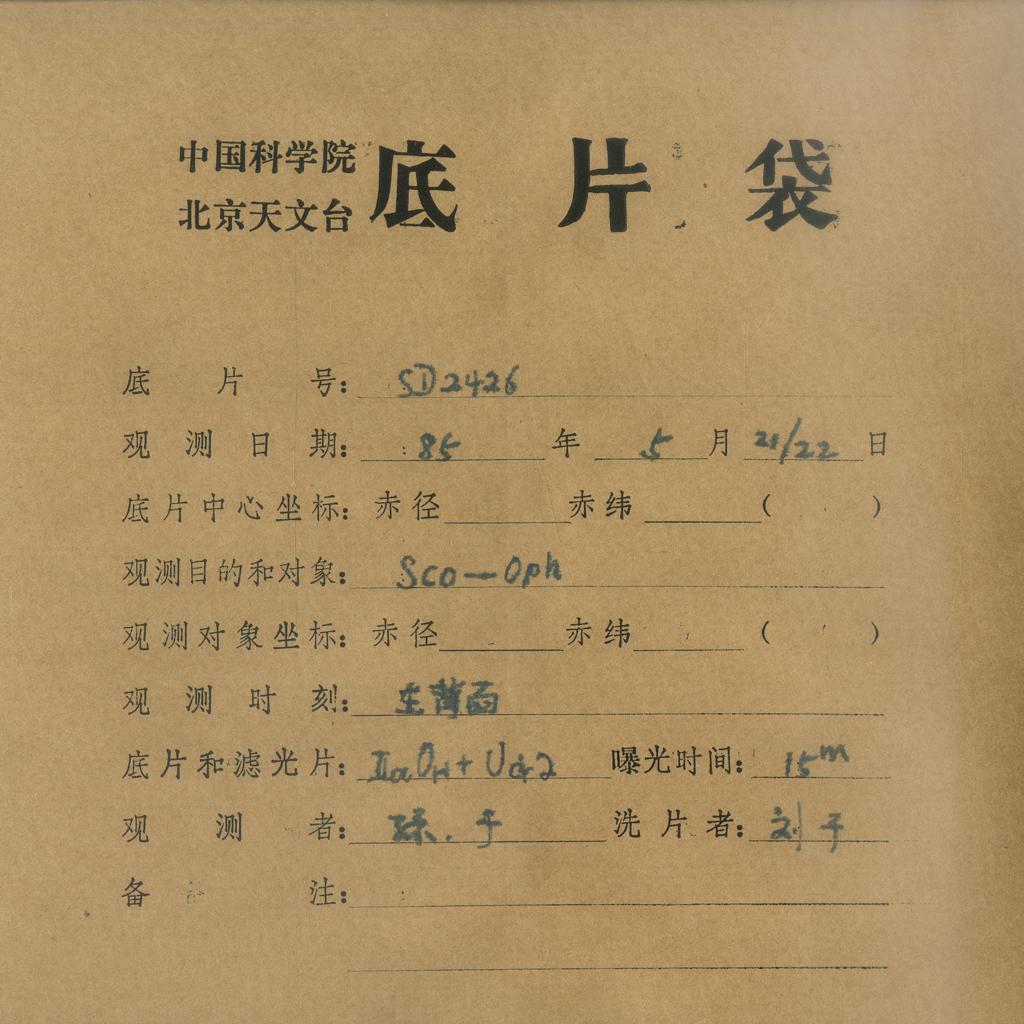 中国科学院
北京天文台
底片袋
底片号: SD2426
观测日期: 85年 5月 21/22日
底片中心坐标: 赤径 赤纬 ( )
观测目的和对象: Sco—Oph
观测对象坐标: 赤径 赤纬 ( )
观测时刻:
底片和滤光片: IIaO 曝光时间: 15m
观测者: 于 洗片者: 刘 于
备注: